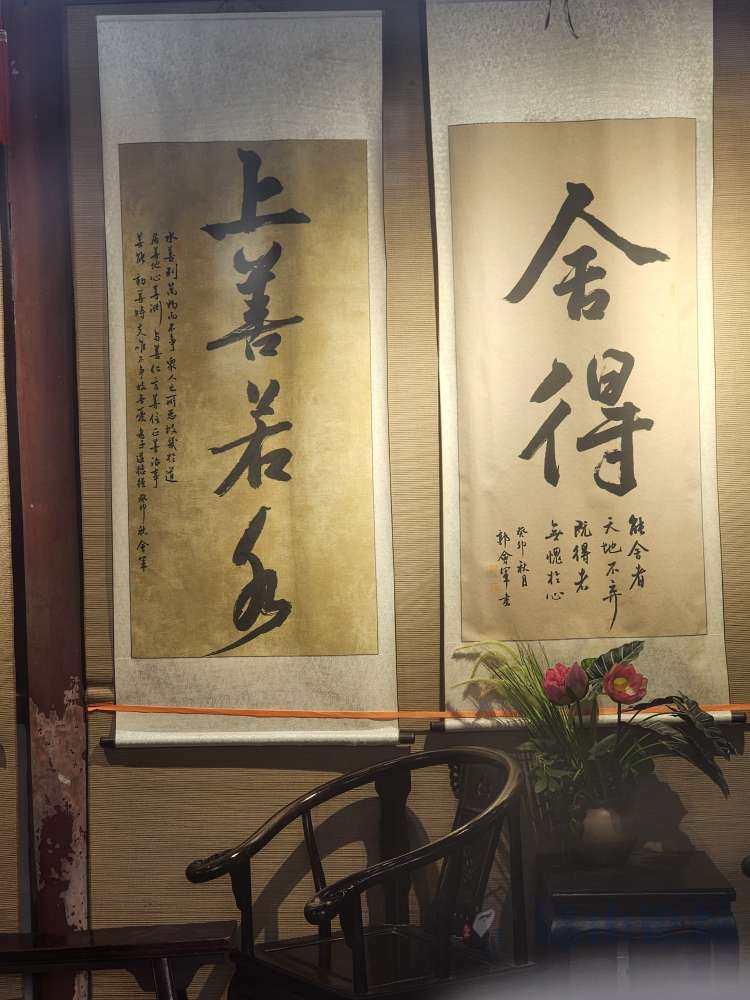 舍得
能舍者
天地不弃
既得者
無愧於心
癸卯秋月
郭會軍書
上善若水
水善利萬物而不争衆人之所惡故幾於道
居善地心善渊与善仁言善信正善治事
善能動善時夫唯不争故老子道德經癸卯秋會軍